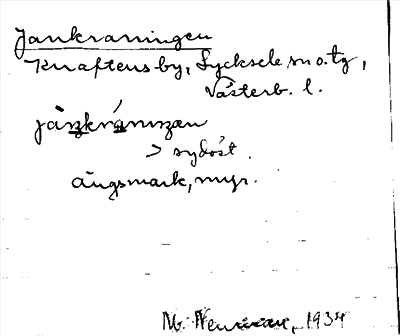 Jankraningen
Knaftens by, Lycksele sn o. tg,
Västerb. l.
> sydöst.
ängsmark, myr.
1934